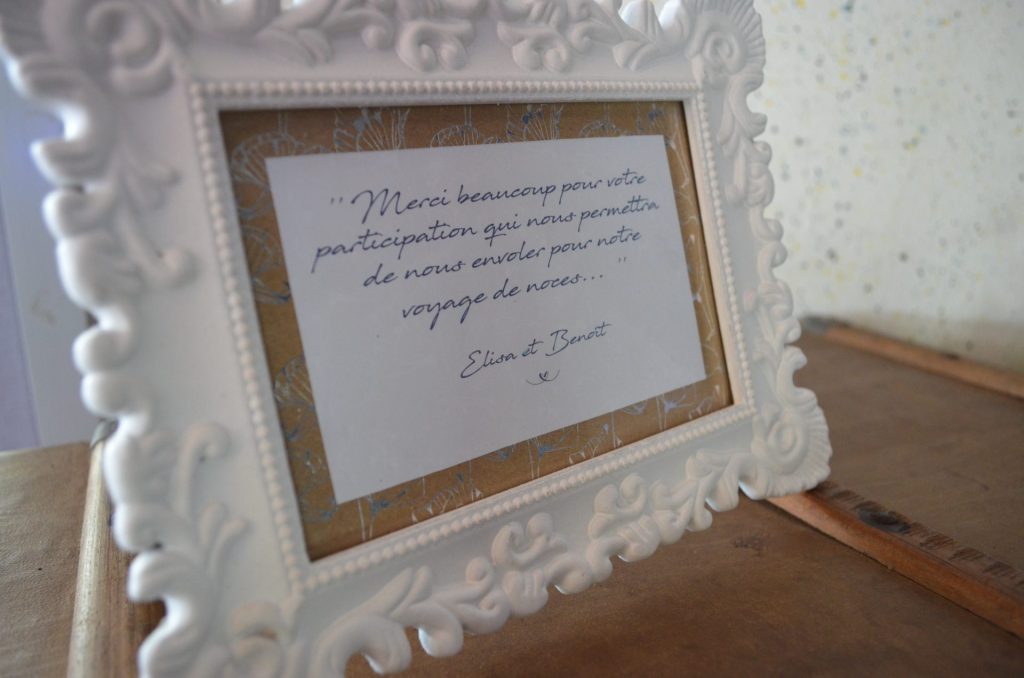 " Merci beaucoup pour votre
participation qui nous permettra
de nous envoler pour notre
voyage de noces... "
Elisa et Benoît